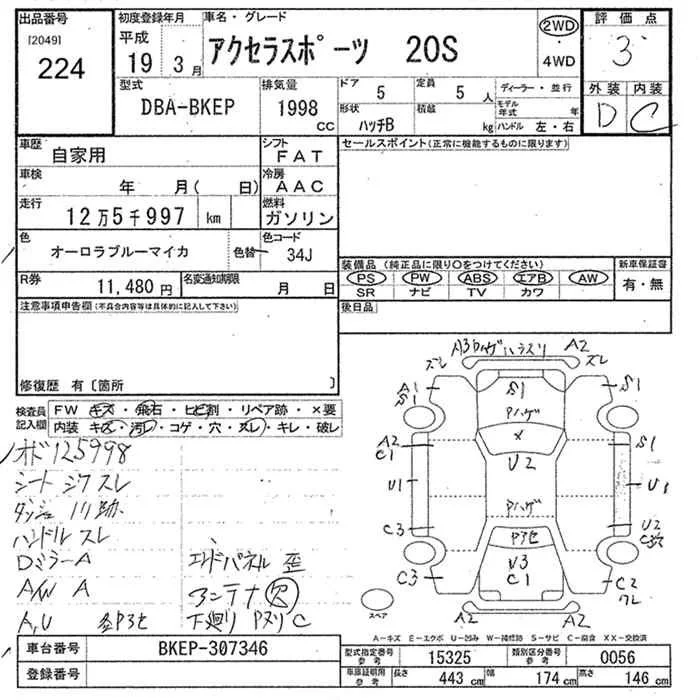 出品番号 初度登録年月 車名・グレード 2WD 評価点
[2049] 平成 アクセラスポーツ 20S ・ 3
224 19 3月 4WD
型式 排気量 ドア 5 定員 5人 ディーラー・並行 外装 内装
DBA-BKEP 1998 cc 形状 ハッチB 積載 kg モデル年式 年 D C
ハンドル 左・右
車歴 自家用 シフト FAT セールスポイント(正常に機能するものに限ります)
車検 年 月( 日) 冷房 AAC
走行 12万5千997 km 燃料 ガソリン
色 オーロラブルーマイカ 色替 色コード 34J 装備品(純正品に限り○をつけてください) 新車保証書
R券 11,480円 名変通知期限 月 日 PS PW ABS エアB AW 有・無
SR ナビ TV カワ
注意事項申告欄(不具合内容等は具体的に記入して下さい) 後日品
修復歴 有〔箇所 〕
検査員 FW キズ・飛石・ヒビ割・リペア跡・×要
記入欄 内装 キズ・汚レ・コゲ・穴・スレ・キレ・破レ
オド125998
シート シワ スレ
ダッシュ
ハンドル スレ
DミラーA エンドパネル 歪
A/W A アンテナ 欠
A,U 下廻り C
A2
スレ スレ
A1 S1 S1 S1
Pハゲ
A2 × S1
C1 U2
U1 Pハゲ U1
C3 U2
U3
C3 C1 C2
スペア A2 A2
A-キズ E-エクボ U-凹み W-補修跡 S-サビ C-腐食 XX-交換済
車台番号 BKEP-307346 型式指定番号 参考 15325 類別区分番号 参考 0056
登録番号 車庫証明用 参考 長さ 443 cm 幅 174 cm 高さ 146 cm